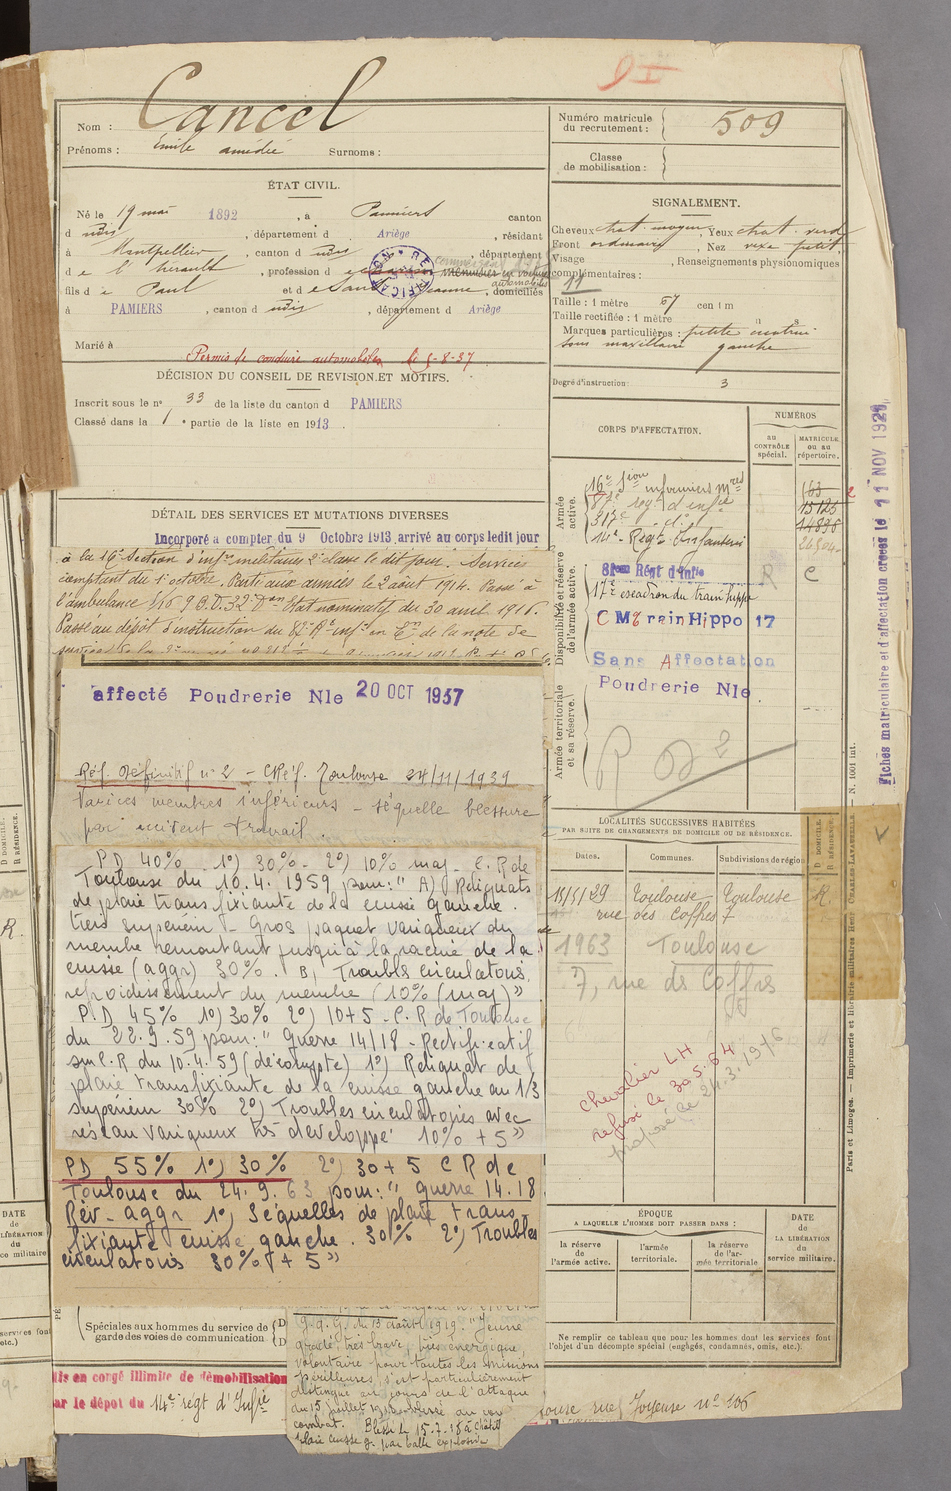 9 I
Nom : Cancel
Prénoms : Emile Amédée Surnoms :
ÉTAT CIVIL.
Né le 19 mai 1892, à Pamiers canton
d udis, département d Ariège, résidant
à Montpellier, canton d udis, département
de l'Hérault, profession d
automobiles
fils de Paul et de Jeanne, domiciliés
à PAMIERS, canton d udis, département d Ariège
Marié à
Permis de conduire automobiles le 5-8-37
DÉCISION DU CONSEIL DE REVISION ET MOTIFS.
Inscrit sous le n° 33 de la liste du canton d PAMIERS
Classé dans la 1e partie de la liste en 1913.
DÉTAIL DES SERVICES ET MUTATIONS DIVERSES
Incorporé a compter du 9 Octobre 1913, arrivé au corps ledit jour
à la 16e Section d'infirs militaires 2e classe le dit jour. Services
comptant du 1er octobre. Parti aux armées le 2 août 1914. Passé à
l'ambulance 5/16 9 B.D. 32e Don Etat nominatif du 30 avril 1916.
Passé au dépôt d'instruction du 87e Rt infie en Con de la note de
affecté Poudrerie Nle 20 OCT 1937
Réf. Définitif n° 2 - CRéf. Toulouse 24/11/1939
Varices membres inférieurs - séquelle blessure
par accident travail.
PD 40% 1°) 30% - 2°) 10% maj - C.R de
Toulouse du 10.4.1959 pour: " A) Reliquats
de plaie transfixiante de la cuisse gauche.
tiers supérieur - Gros paquet variqueux du
membre remontant jusqu'à la racine de la
cuisse (aggr) 30%. B) Troubles circulatoires,
refroidissement du membre (10% (maj) "
P.D 45% 1°) 30% 2°) 10+5 - C.R de Toulouse
du 22.9.59 pour: " Guerre 14/18 - Rectificatif
sur C.R du 10.4.59 (décompte) 1°) Reliquat de
plaie transfixiante de la cuisse gauche au 1/3
supérieur 30% 2°) Troubles circulatoires avec
réseau variqueux très développé 10% + 5 "
PD 55% 1°) 30% 2°) 30+5 C R de
Toulouse du 24.9.63 pour: " guerre 14.18
Rév - aggr 1°) Séquelles de plaie trans
fixiante cuisse gauche. 30% 2°) Troubles
circulatoires 30% + 5 "
Spéciales aux hommes du service de
garde des voies de communication
G.Q.G. du 13 août 1919. "Jeune
gradé très brave, très énergique,
volontaire pour toutes les missions
périlleuses, s'est particulièrement
distingué au cours de l'attaque
du 15 juillet
combat. " Blessé le 15-7-18 à
plaie cuisse g. par balle explosive
is en congé illimité de démobilisation
ar le dépot du 14e régt d'Infie
ouse rue Joyeuse n° 106
Numéro matricule du recrutement : 509
Classe de mobilisation :
SIGNALEMENT.
Cheveux chat. moyen, Yeux chat. verd
Front ordinaire, Nez vexe petit
Visage, Renseignements physionomiques
complémentaires : 11
Taille : 1 mètre 67 centim
Taille rectifiée : 1 mètre
Marques particulières : petite
sous maxillaire gauche
Degré d'instruction : 3
CORPS D'AFFECTATION.
NUMÉROS
au CONTRÔLE spécial.
MATRICULE ou au répertoire.
Armée active.
16e Sion infirmiers mres 163
87e régt d'infie 15125
317e do 14838
14e Régt d'Infanterie
Disponibilité et réserve de l'armée active.
81ème Régt d'Infie R C
17e escadron du train hippo
C M rain Hippo 17
Sans Affectation
Poudrerie Nle.
Armée territoriale et sa réserve.
LOCALITÉS SUCCESSIVES HABITÉES
PAR SUITE DE CHANGEMENTS DE DOMICILE OU DE RÉSIDENCE.
Dates. Communes. Subdivisions de région D DOMICILE. R RÉSIDENCE.
15/5/29 Toulouse Toulouse R.
rue des Coffres 7
1963 Toulouse
7, rue des Coffres
Chevalier LH
refusé le 30.5.64
proposé le 24.3.1976
ÉPOQUE
A LAQUELLE L'HOMME DOIT PASSER DANS :
la réserve de l'armée active.
l'armée territoriale.
la réserve de l'armée territoriale
DATE de LA LIBÉRATION du service militaire.
Ne remplir ce tableau que pour les hommes dont les services font
l'objet d'un décompte spécial (engagés, condamnés, omis, etc.).
Fiches matriculaire et d'affectation créées le 11 NOV 1927
Paris et Limoges. — Imprimerie et librairie militaires Henri CHARLES-LAVAUZELLE. — N. 1001 int.
D DOMICILE.
R RÉSIDENCE.
R.
DATE
de
LIBÉRATION
du
ce militaire
services font
etc.)